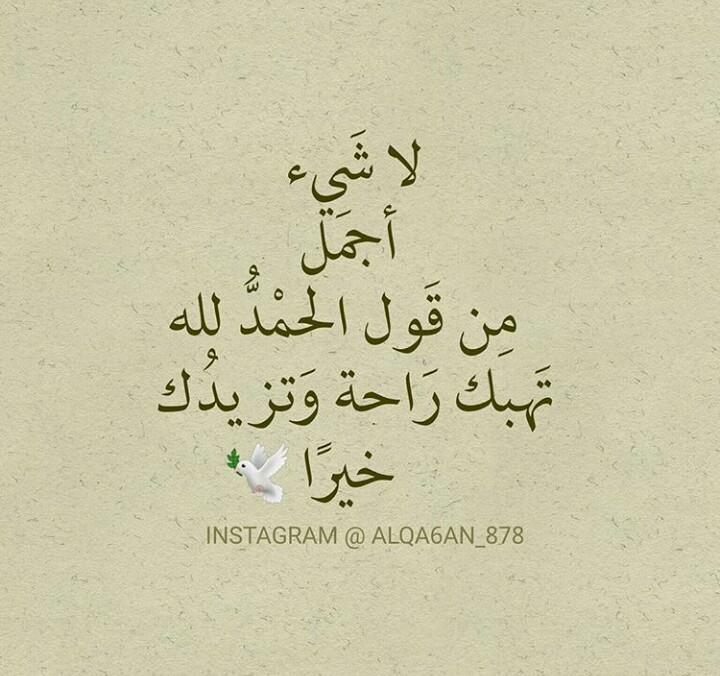 لا شَيء
أجمَل
مِن قَول الحمْدُّ لله
تَهبَك رَاحة وَتزيدُك
خيرًا 🕊️
INSTAGRAM @ ALQA6AN_878